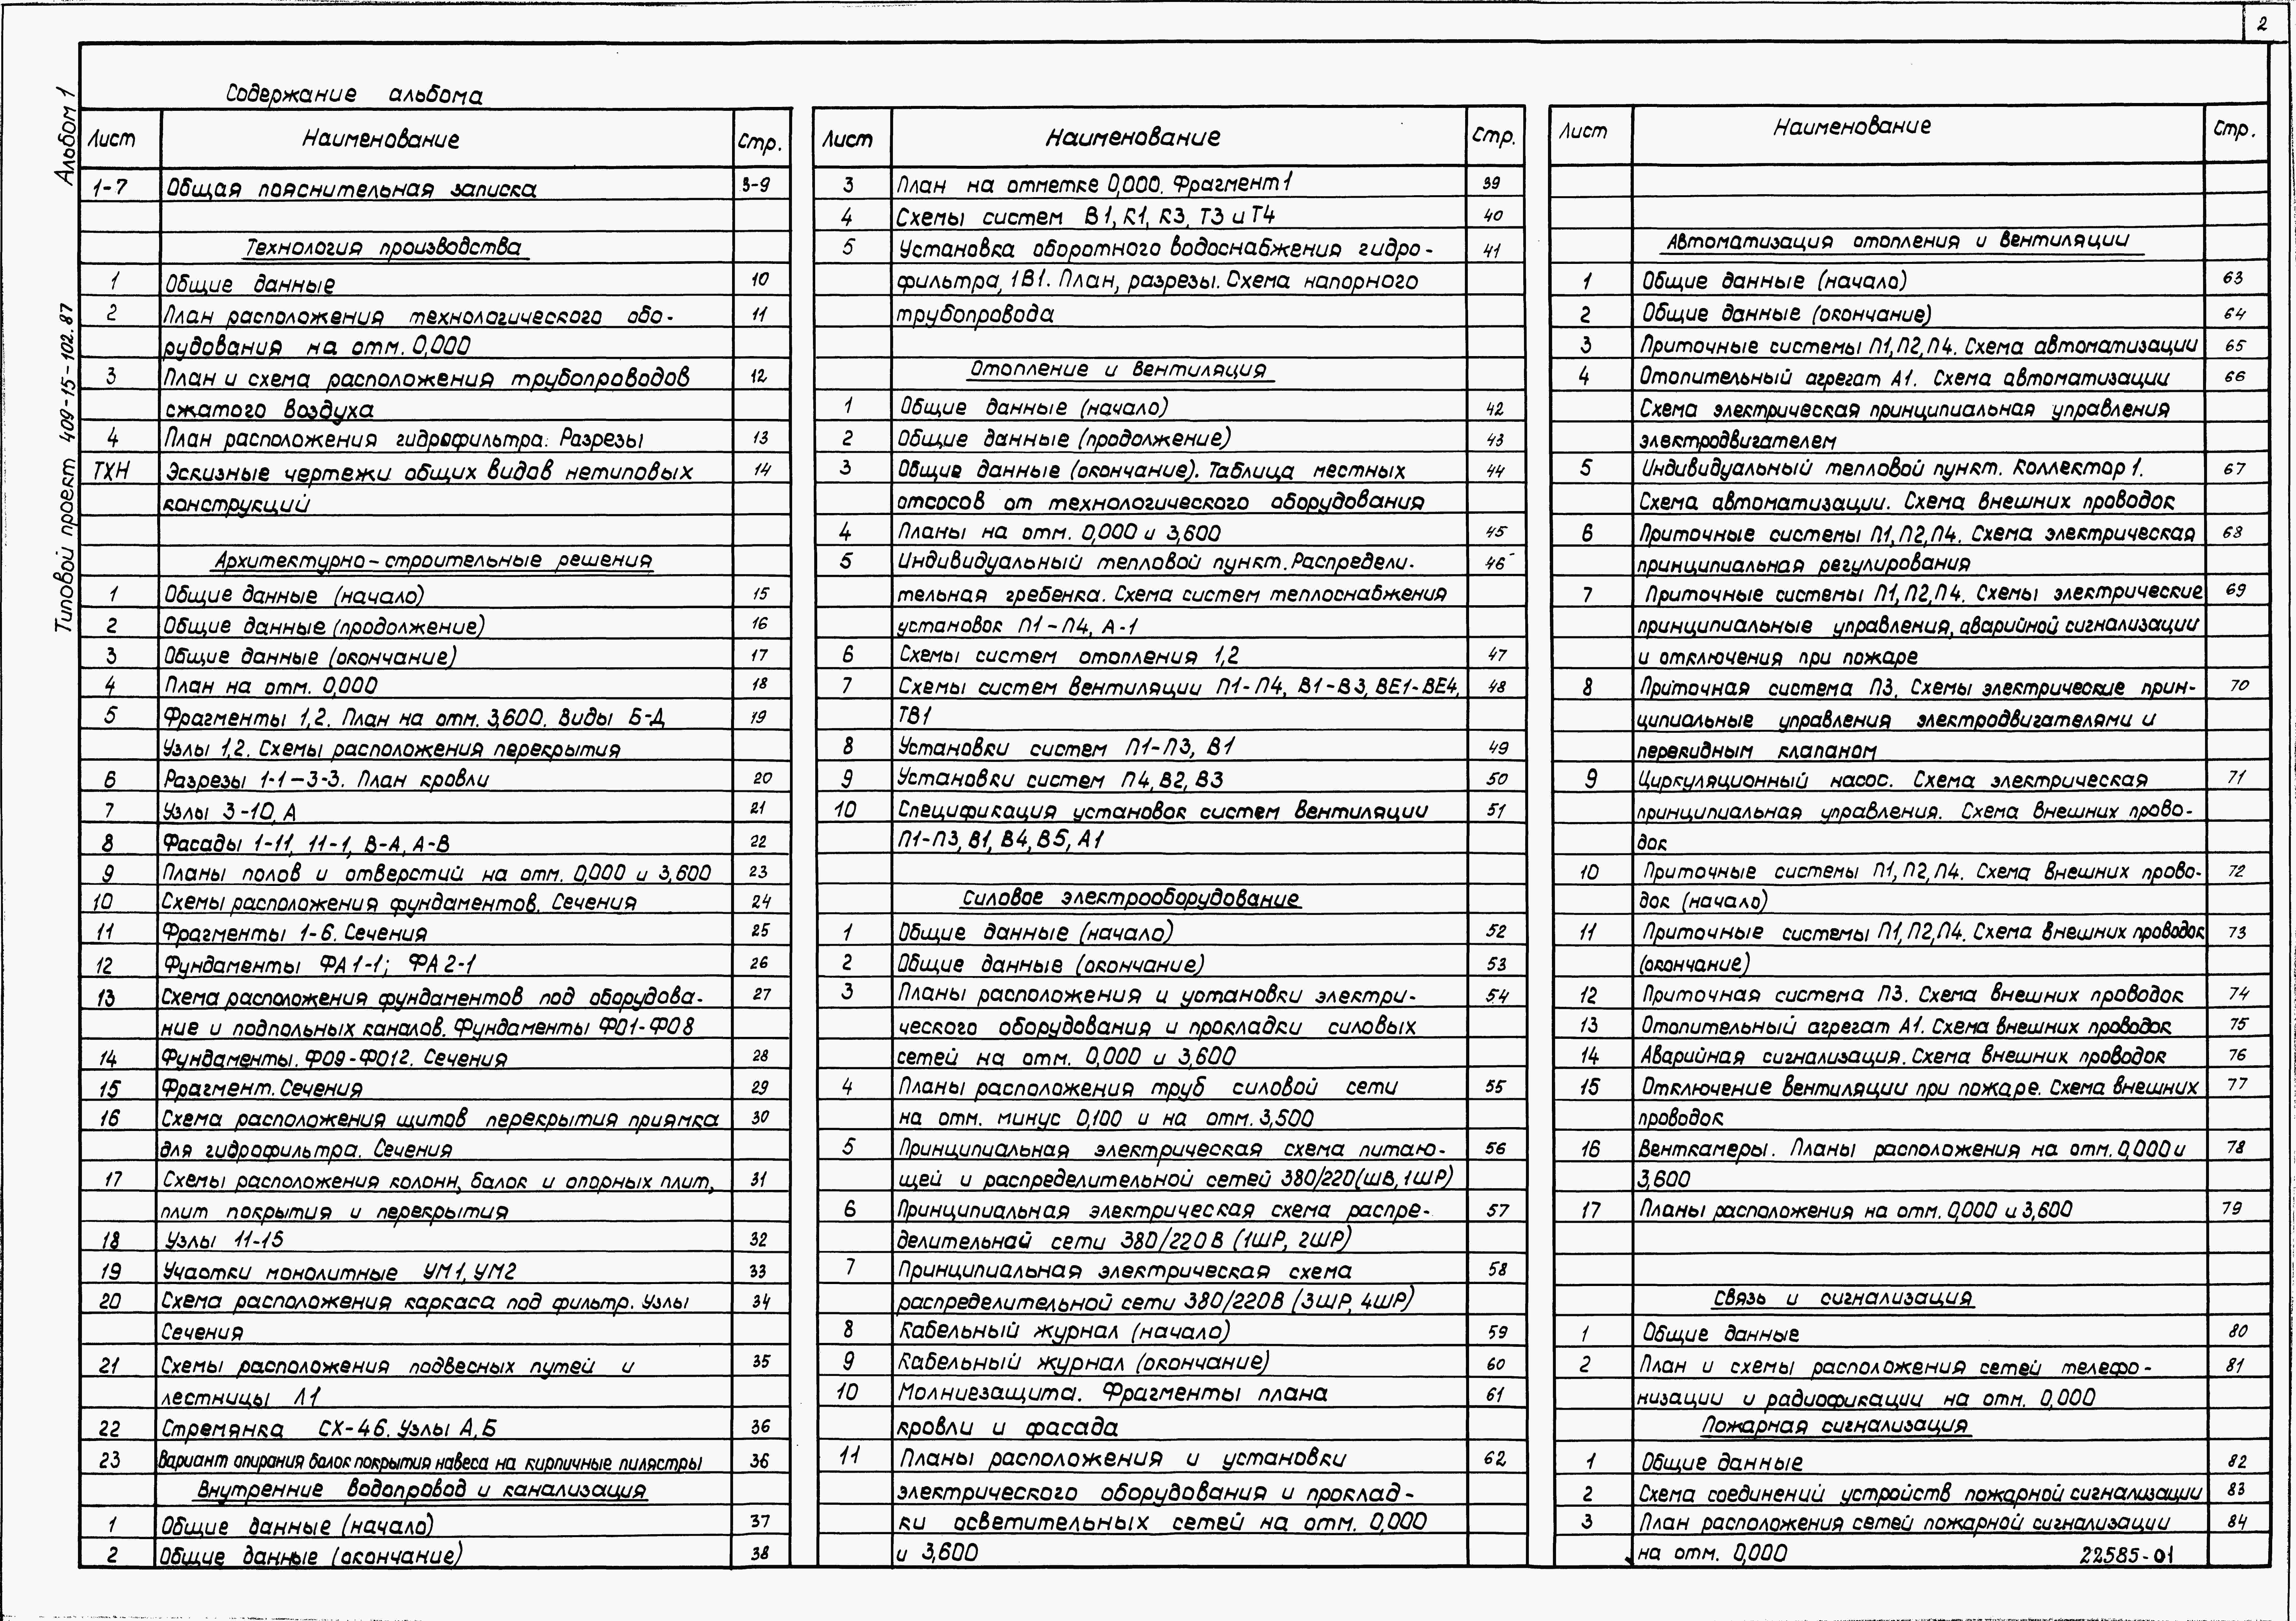 2
Альбом 1
Типовой проект 409-15-102.87
Содержание альбома
Лист Наименование Стр.
1-7 Общая пояснительная записка 3-9
Технология производства
1 Общие данные 10
2 План расположения технологического обо- 11
рудования на отм. 0,000
3 План и схема расположения трубопроводов 12
сжатого воздуха
4 План расположения гидрофильтра. Разрезы 13
ТХН Эскизные чертежи общих видов нетиповых 14
конструкций
Архитектурно-строительные решения
1 Общие данные (начало) 15
2 Общие данные (продолжение) 16
3 Общие данные (окончание) 17
4 План на отм. 0,000 18
5 Фрагменты 1,2. План на отм. 3,600. Виды Б-Д 19
Узлы 1,2. Схемы расположения перекрытия
6 Разрезы 1-1-3-3. План кровли 20
7 Узлы 3-10, А 21
8 Фасады 1-11, 11-1, В-А, А-В 22
9 Планы полов и отверстий на отм. 0,000 и 3,600 23
10 Схемы расположения фундаментов. Сечения 24
11 Фрагменты 1-6. Сечения 25
12 Фундаменты ФА1-1; ФА2-1 26
13 Схема расположения фундаментов под оборудова- 27
ние и подпольных каналов. Фундаменты ФО1-ФО8
14 Фундаменты. ФО9-ФО12. Сечения 28
15 Фрагмент. Сечения 29
16 Схема расположения щитов перекрытия приямка 30
для гидрофильтра. Сечения
17 Схемы расположения колонн, балок и опорных плит, 31
плит покрытия и перекрытия
18 Узлы 11-15 32
19 Участки монолитные УМ1, УМ2 33
20 Схема расположения каркаса под фильтр. Узлы 34
Сечения
21 Схемы расположения подвесных путей и 35
лестницы Л1
22 Стремянка СХ-46. Узлы А, Б 36
23 Вариант опирания балок покрытия навеса на кирпичные пилястры 36
Внутренние водопровод и канализация
1 Общие данные (начало) 37
2 Общие данные (окончание) 38
Лист Наименование Стр.
3 План на отметке 0,000. Фрагмент 1 39
4 Схемы систем В1, К1, К3, Т3 и Т4 40
5 Установка оборотного водоснабжения гидро- 41
фильтра, 1В1. План, разрезы. Схема напорного
трубопровода
Отопление и вентиляция
1 Общие данные (начало) 42
2 Общие данные (продолжение) 43
3 Общие данные (окончание). Таблица местных 44
отсосов от технологического оборудования
4 Планы на отм. 0,000 и 3,600 45
5 Индивидуальный тепловой пункт. Распредели- 46
тельная гребенка. Схема систем теплоснабжения
установок П1-П4, А-1
6 Схемы систем отопления 1,2 47
7 Схемы систем вентиляции П1-П4, В1-В3, ВЕ1-ВЕ4, 48
ТВ1
8 Установки систем П1-П3, В1 49
9 Установки систем П4, В2, В3 50
10 Спецификация установок систем вентиляции 51
П1-П3, В1, В4, В5, А1
Силовое электрооборудование
1 Общие данные (начало) 52
2 Общие данные (окончание) 53
3 Планы расположения и установки электри- 54
ческого оборудования и прокладки силовых
сетей на отм. 0,000 и 3,600
4 Планы расположения труб силовой сети 55
на отм. минус 0,100 и на отм. 3,500
5 Принципиальная электрическая схема питаю- 56
щей и распределительной сетей 380/220 (ШВ, 1ШР)
6 Принципиальная электрическая схема распре- 57
делительнай сети 380/220 В (1ШР, 2ШР)
7 Принципиальная электрическая схема 58
распределительной сети 380/220 В (3ШР, 4ШР)
8 Кабельный журнал (начало) 59
9 Кабельный журнал (окончание) 60
10 Молниезащита. Фрагменты плана 61
кровли и фасада
11 Планы расположения и установки 62
электрического оборудования и проклад-
ки осветительных сетей на отм. 0,000
и 3,600
Лист Наименование Стр.
Автоматизация отопления и вентиляции
1 Общие данные (начало) 63
2 Общие данные (окончание) 64
3 Приточные системы П1, П2, П4. Схема автоматизации 65
4 Отопительный агрегат А1. Схема автоматизации 66
Схема электрическая принципиальная управления
электродвигателем
5 Индивидуальный тепловой пункт. Коллектор 1. 67
Схема автоматизации. Схема внешних проводок
6 Приточные системы П1, П2, П4. Схема электрическая 68
принципиальная регулирования
7 Приточные системы П1, П2, П4. Схемы электрические 69
принципиальные управления, аварийной сигнализации
и отключения при пожаре
8 Приточная система П3. Схемы электрические прин- 70
ципиальные управления электродвигателями и
перекидным клапаном
9 Циркуляционный насос. Схема электрическая 71
принципиальная управления. Схема внешних прово-
док
10 Приточные системы П1, П2, П4. Схема внешних прово- 72
док (начало)
11 Приточные системы П1, П2, П4. Схема внешних проводок 73
(окончание)
12 Приточная система П3. Схема внешних проводок 74
13 Отопительный агрегат А1. Схема внешних проводок 75
14 Аварийная сигнализация. Схема внешних проводок 76
15 Отключение вентиляции при пожаре. Схема внешних 77
проводок
16 Венткамеры. Планы расположения на отм. 0,000 и 78
3,600
17 Планы расположения на отм. 0,000 и 3,600 79
Связь и сигнализация
1 Общие данные 80
2 План и схемы расположения сетей телефо- 81
низации и радиофикации на отм. 0,000
Пожарная сигнализация
1 Общие данные 82
2 Схема соединений устройств пожарной сигнализации 83
3 План расположения сетей пожарной сигнализации 84
на отм. 0,000
22585-01